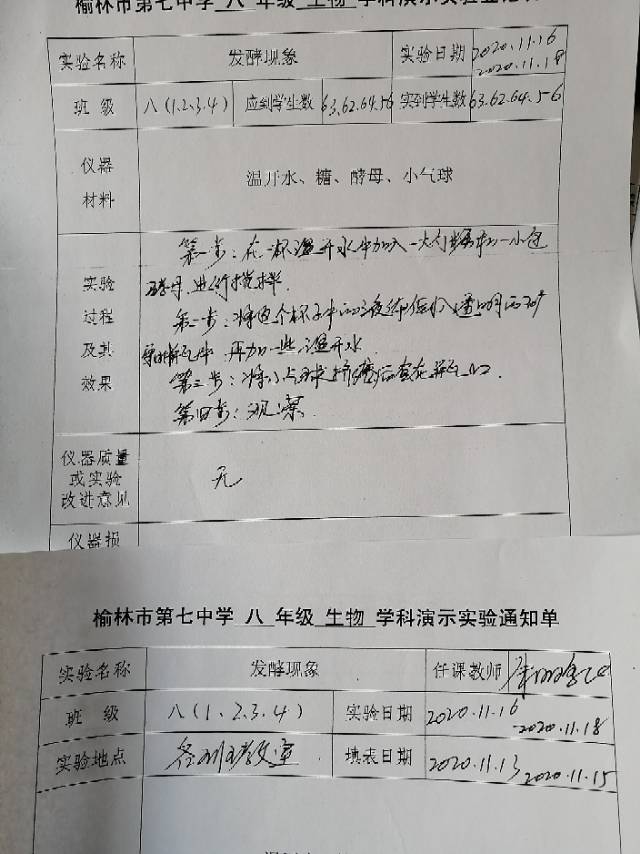 榆林市第七中学 八 年级 生物 学科演示实验登记表
实验名称 发酵现象 实验日期 2020.11.16
2020.11.18
班 级 八(1.2.3.4) 应到学生数 63.62.64.56 实到学生数 63.62.64.56
仪器
材料
温开水、糖、酵母、小气球
实验
过程
及其
效果
第一步:在一杯温开水中加入一大勺糖和一小包
酵母,进行搅拌.
第二步:将这个杯子中的液体倒入透明的
瓶中,再加一些温开水
第三步:将小气球挤瘪后套在瓶口.
第四步:观察.
仪器质量
或实验
改进意见
无
仪器损
榆林市第七中学 八 年级 生物 学科演示实验通知单
实验名称 发酵现象 任课教师
班 级 八(1、2.3.4) 实验日期 2020.11.16
-2020.11.18
实验地点 各班教室 填表日期 2020.11.13
2020.11.15